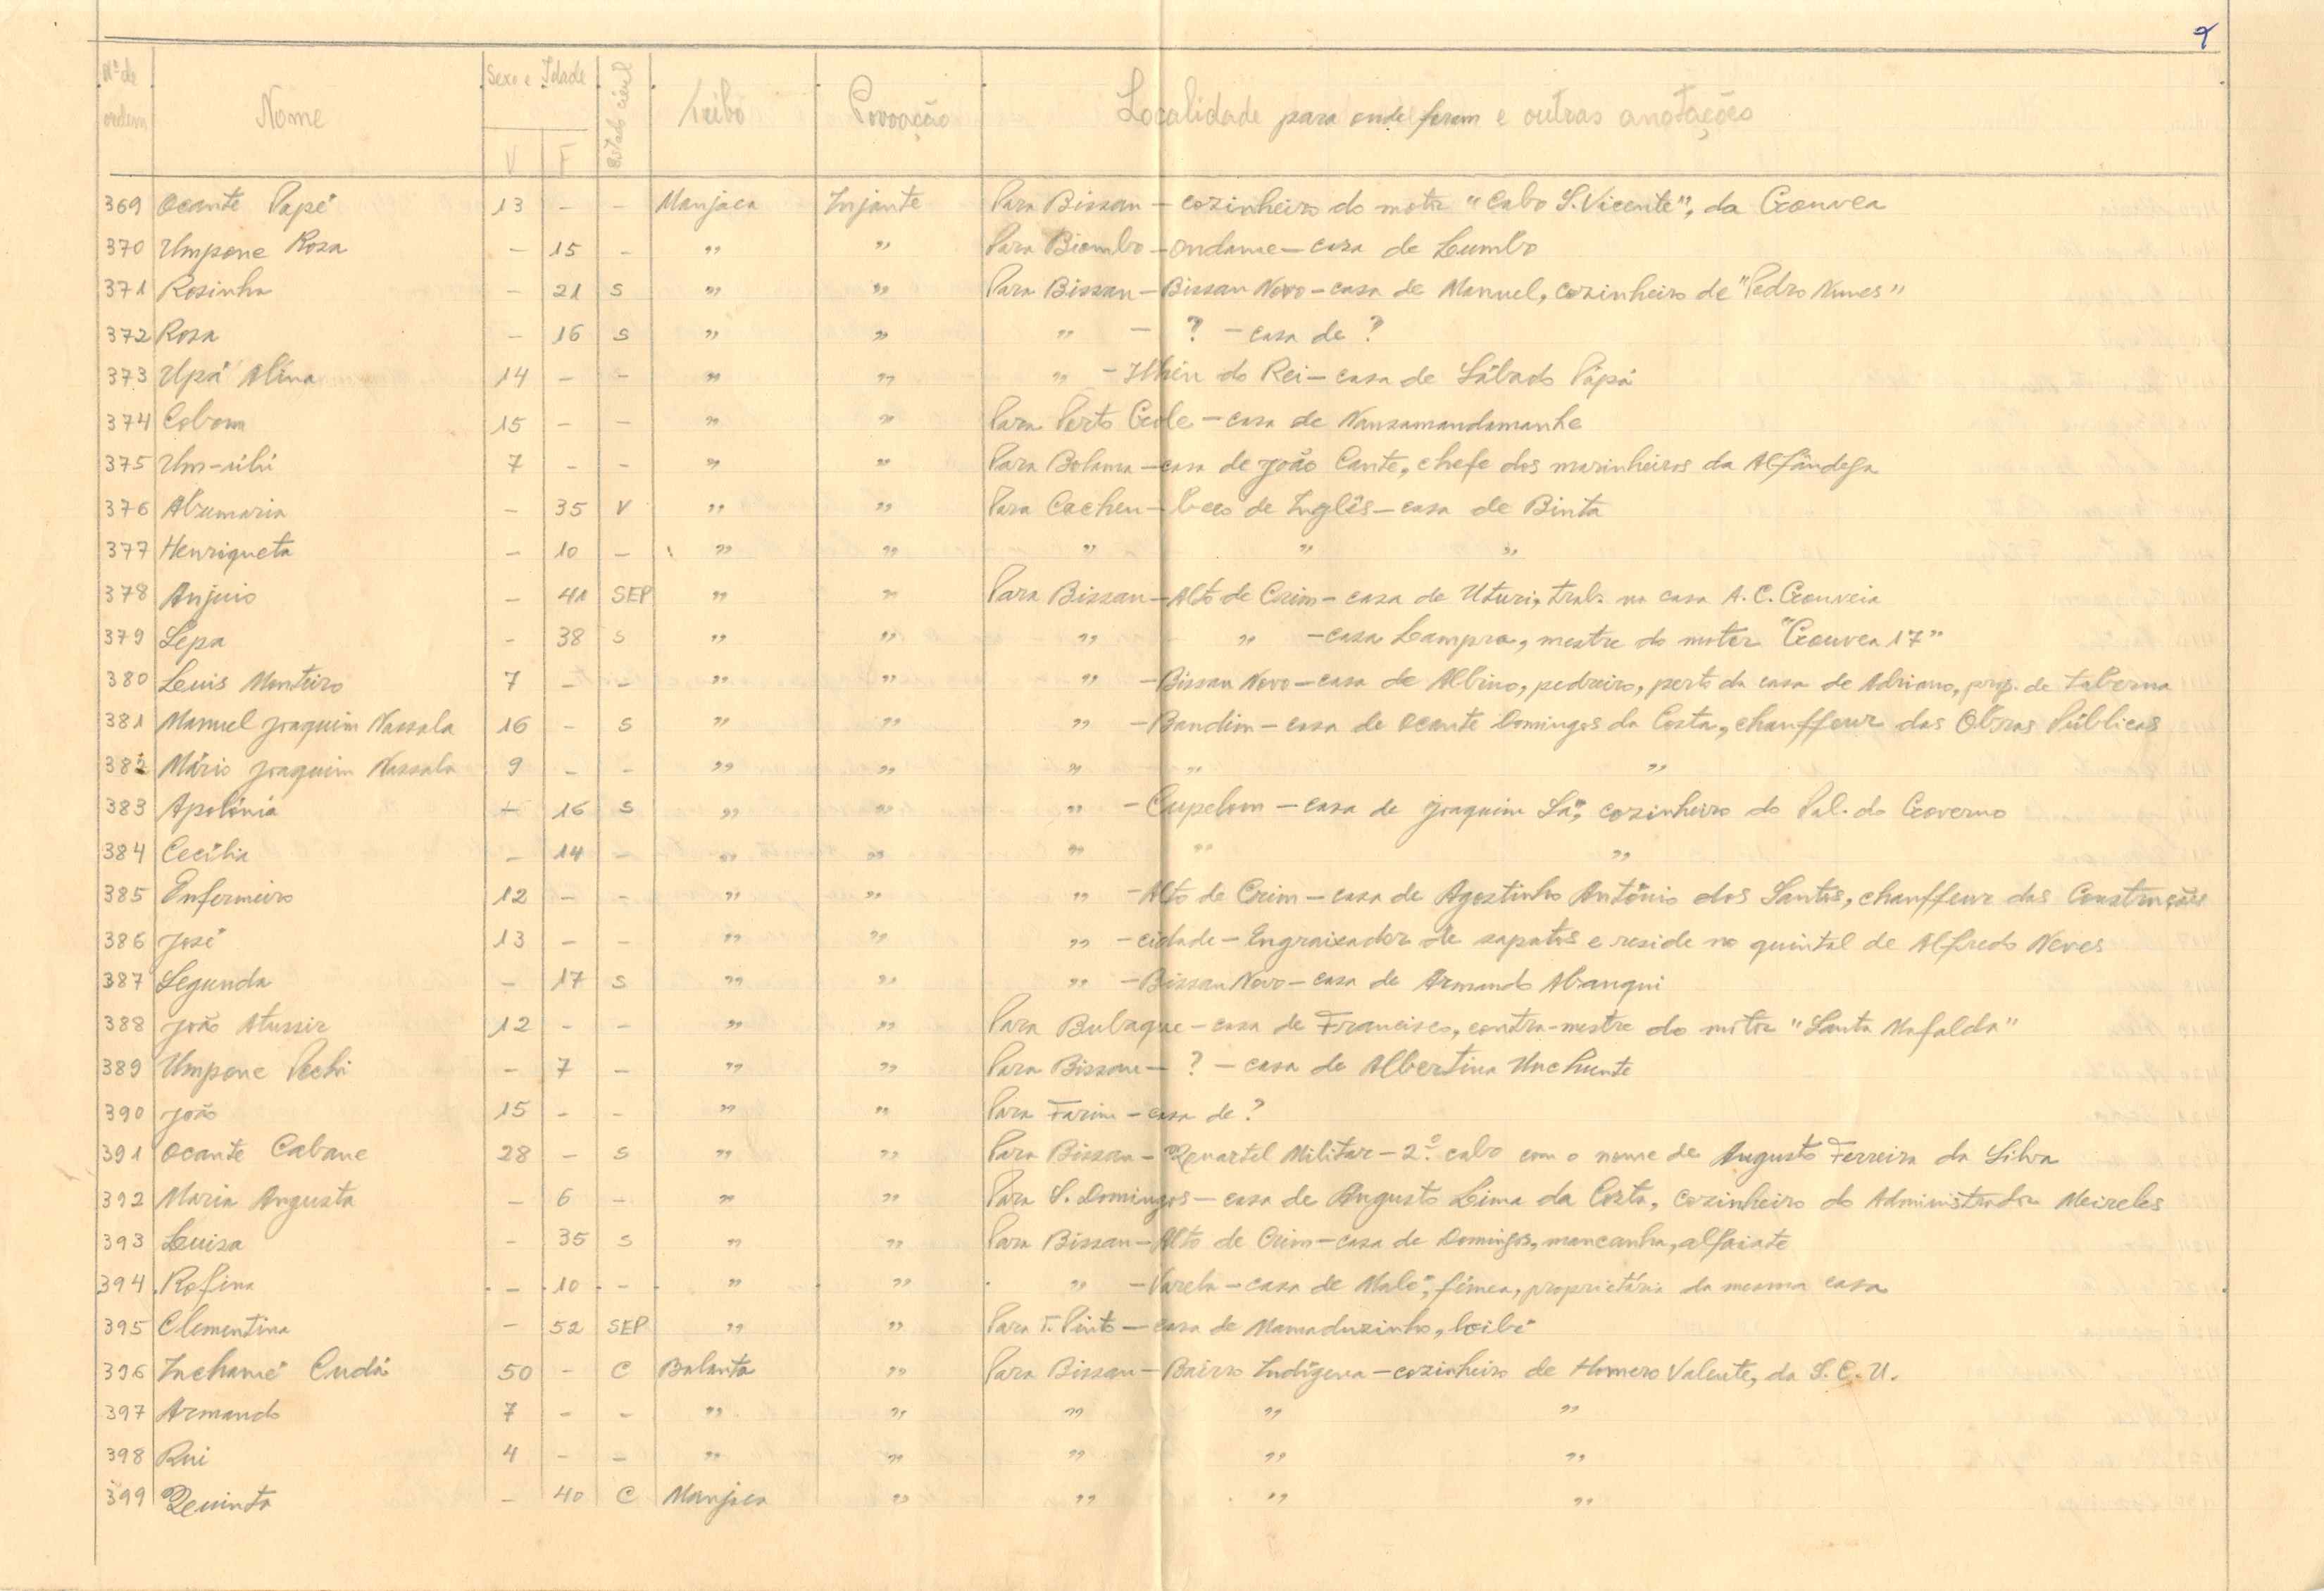 9
Nº de ordem Nome Sexo e Idade V F Estado civil Tribo Povoação Localidade para onde foram e outras anotações
369 Ocante Papé 13 - - Manjaca Injante Para Bissau - cozinheiro do motor "Cabo S. Vicente", da Gouvea
370 Umpone Rosa - 15 - " " Para Biombo - Ondame - casa de Lumbo
371 Rosinha - 21 S " " Para Bissau - Bissau Novo - casa de Manuel, cozinheiro de "Pedro Nunes"
372 Rosa - 16 S " " " - ? - casa de ?
373 Upá Alina 14 - - " " " - Ilhéu do Rei - casa de Sábado Pápá
374 Cobom 15 - - " " Para Porto Gole - casa de Nansamandamanhe
375 Um-úhú 7 - - " " Para Bolama - casa de João Cante, chefe dos marinheiros da Alfândega
376 Abumaria - 35 V " " Para Cacheu - beco de Inglês - casa de Binta
377 Henriqueta - 10 - " " " " "
378 Anjuio - 41 SEP " " Para Bissau - Alto de Crim - casa de Uturi, trab. na casa A. C. Gouveia
379 Sepa - 38 S " " " " - casa Lampra, mestre do motor "Gouvea 17"
380 Luis Monteiro 7 - - " " " - Bissau Novo - casa de Albino, pedreiro, perto da casa de Adriano, prop. de taberna
381 Manuel Joaquim Nassala 16 - S " " " - Bandim - casa de Ocante Domingos da Costa, chauffeur das Obras Públicas
382 Mário Joaquim Nassala 9 - - " " " " "
383 Apolónia - 16 S " " " - Cupelom - casa de Joaquim Sá, cozinheiro do Pal. do Governo
384 Cecília - 14 - " " " " "
385 Enfermeiro 12 - - " " " - Alto de Crim - casa de Agostinho António dos Santos, chauffeur das Construções
386 José 13 - - " " " - cidade - Engraixador de sapatos e reside no quintal de Alfredo Neves
387 Segunda - 17 S " " " - Bissau Novo - casa de Armando Abangui
388 João Atussir 12 - - " " Para Bubaque - casa de Francisco, contra-mestre do motor "Santa Mafalda"
389 Umpone Pechi - 7 - " " Para Bissau - ? - casa de Albertina Unchunte
390 João 15 - - " " Para Farim - casa de ?
391 Ocante Cabane 28 - S " " Para Bissau - Quartel Militar - 2º cabo com o nome de Augusto Ferreira da Silva
392 Maria Augusta - 6 - " " Para S. Domingos - casa de Augusto Lima da Costa, cozinheiro do Administrador Meireles
393 Luisa - 35 S " " Para Bissau - Alto de Crim - casa de Domingos, mancanha, alfaiate
394 Rofina - 10 - " " " - Varela - casa de Malé, fêmea, proprietária da mesma casa
395 Clementina - 52 SEP " " Para T. Pinto - casa de Mamaduzinho, loibé
396 Inchamé Cudá 50 - C Balanta " Para Bissau - Bairro Indígena - cozinheiro de Homero Valente, da S. C. U.
397 Armando 7 - - " " " " "
398 Rui 4 - - " " " " "
399 Quinta - 40 C Manjaca " " " "